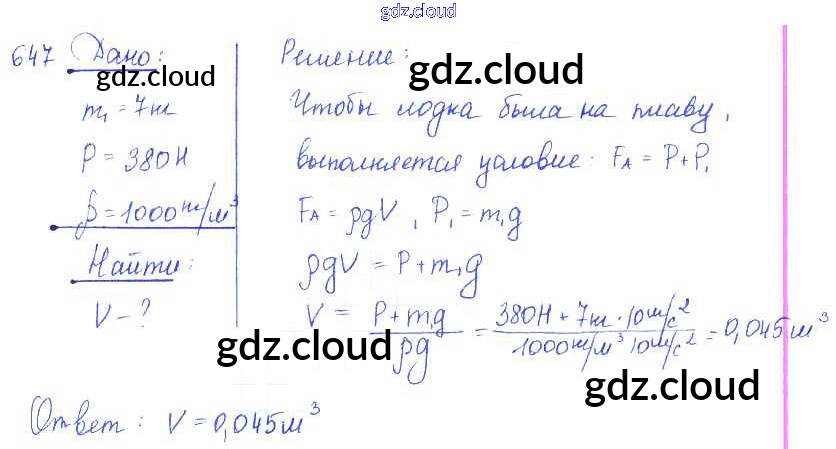 gdz.cloud
647 Дано:
gdz.cloud
m₁ = 7кг
P = 380Н
ρ = 1000кг/м³
Найти:
V - ?
Решение:
gdz.cloud
Чтобы лодка была на плаву,
выполняется условие: Fᴀ = P + P₁
Fᴀ = ρgV, P₁ = m₁g
ρgV = P + m₁g
V = (P + m₁g)/(ρg) = (380Н + 7кг · 10м/с²)/(1000кг/м³ 10м/с²) = 0,045м³
gdz.cloud
gdz.cloud
Ответ: V = 0,045м³